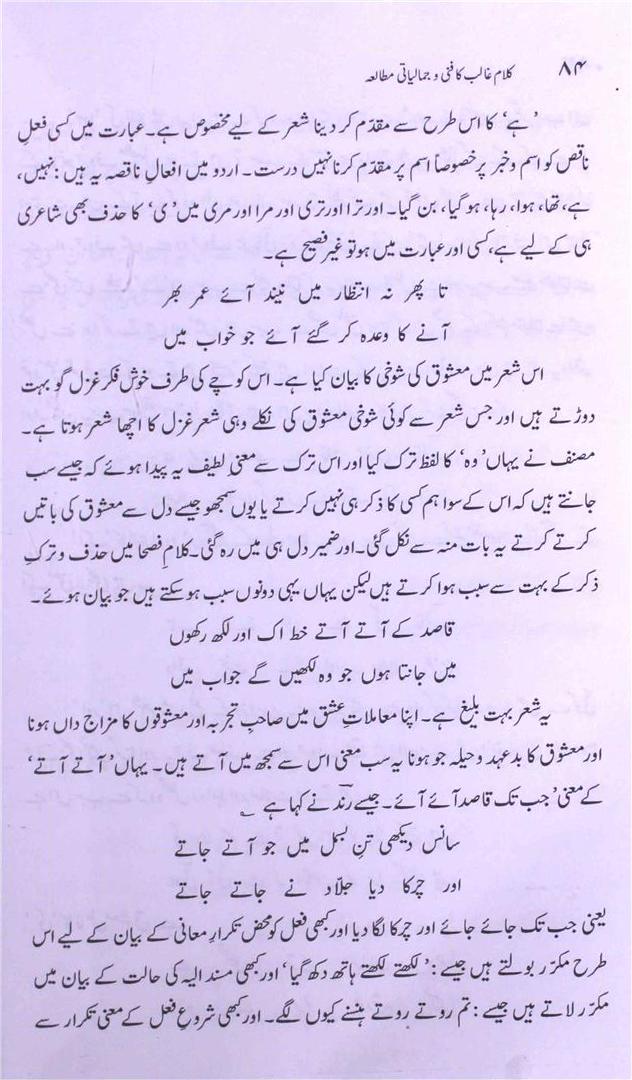 ۸۴ کلام غالب کا فنی و جمالیاتی مطالعہ
’ہے‘ کا اس طرح سے مقدّم کر دینا شعر کے لیے مخصوص ہے۔ عبارت میں کسی فعلِ
ناقص کو اسم و خبر پر خصوصاً اسم پر مقدّم کرنا نہیں درست۔ اردو میں افعالِ ناقصہ یہ ہیں: نہیں،
ہے، تھا، ہوا، رہا، ہو گیا، بن گیا۔ اور ترا اور تری اور مرا اور مری میں ’ی‘ کا حذف بھی شاعری
ہی کے لیے ہے، کسی اور عبارت میں ہو تو غیر فصیح ہے۔
تا پھر نہ انتظار میں نیند آئے عمر بھر
آنے کا وعدہ کر گئے آئے جو خواب میں
اس شعر میں معشوق کی شوخی کا بیان کیا ہے۔ اس کوچے کی طرف خوش فکر غزل گو بہت
دوڑتے ہیں اور جس شعر سے کوئی شوخی معشوق کی نکلے وہی شعر غزل کا اچھا شعر ہوتا ہے۔
مصنف نے یہاں ’وہ‘ کا لفظ ترک کیا اور اس ترک سے معنی لطیف یہ پیدا ہوئے کہ جیسے سب
جانتے ہیں کہ اس کے سوا ہم کسی کا ذکر ہی نہیں کرتے یا یوں سمجھو جیسے دل سے معشوق کی باتیں
کرتے کرتے یہ بات منہ سے نکل گئی۔ اور ضمیر دل ہی میں رہ گئی۔ کلامِ فصحا میں حذف و ترکِ
ذکر کے بہت سے سبب ہوا کرتے ہیں لیکن یہاں یہی دونوں سبب ہو سکتے ہیں جو بیان ہوئے۔
قاصد کے آتے آتے خط اک اور لکھ رکھوں
میں جانتا ہوں جو وہ لکھیں گے جواب میں
یہ شعر بہت بلیغ ہے۔ اپنا معاملاتِ عشق میں صاحبِ تجربہ اور معشوقوں کا مزاج داں ہونا
اور معشوق کا بدعہد و حیلہ جو ہونا یہ سب معنی اس سے سمجھ میں آتے ہیں۔ یہاں ’آتے آتے‘
کے معنی ’جب تک قاصد آئے آئے۔ جیسے رندؔ نے کہا ہے ؂
سانس دیکھی تنِ بسمل میں جو آتے جاتے
اور چرکا دیا جلّاد نے جاتے جاتے
یعنی جب تک جائے جائے اور چرکا لگا دیا اور کبھی فعل کو محض تکرارِ معانی کے بیان کے لیے اس
طرح مکرّر بولتے ہیں جیسے: ’لکھتے لکھتے ہاتھ دکھ گیا‘ اور کبھی مسند الیہ کی حالت کے بیان میں
مکرّر لاتے ہیں جیسے: تم روتے روتے ہنسنے کیوں لگے۔ اور کبھی شروعِ فعل کے معنی تکرار سے